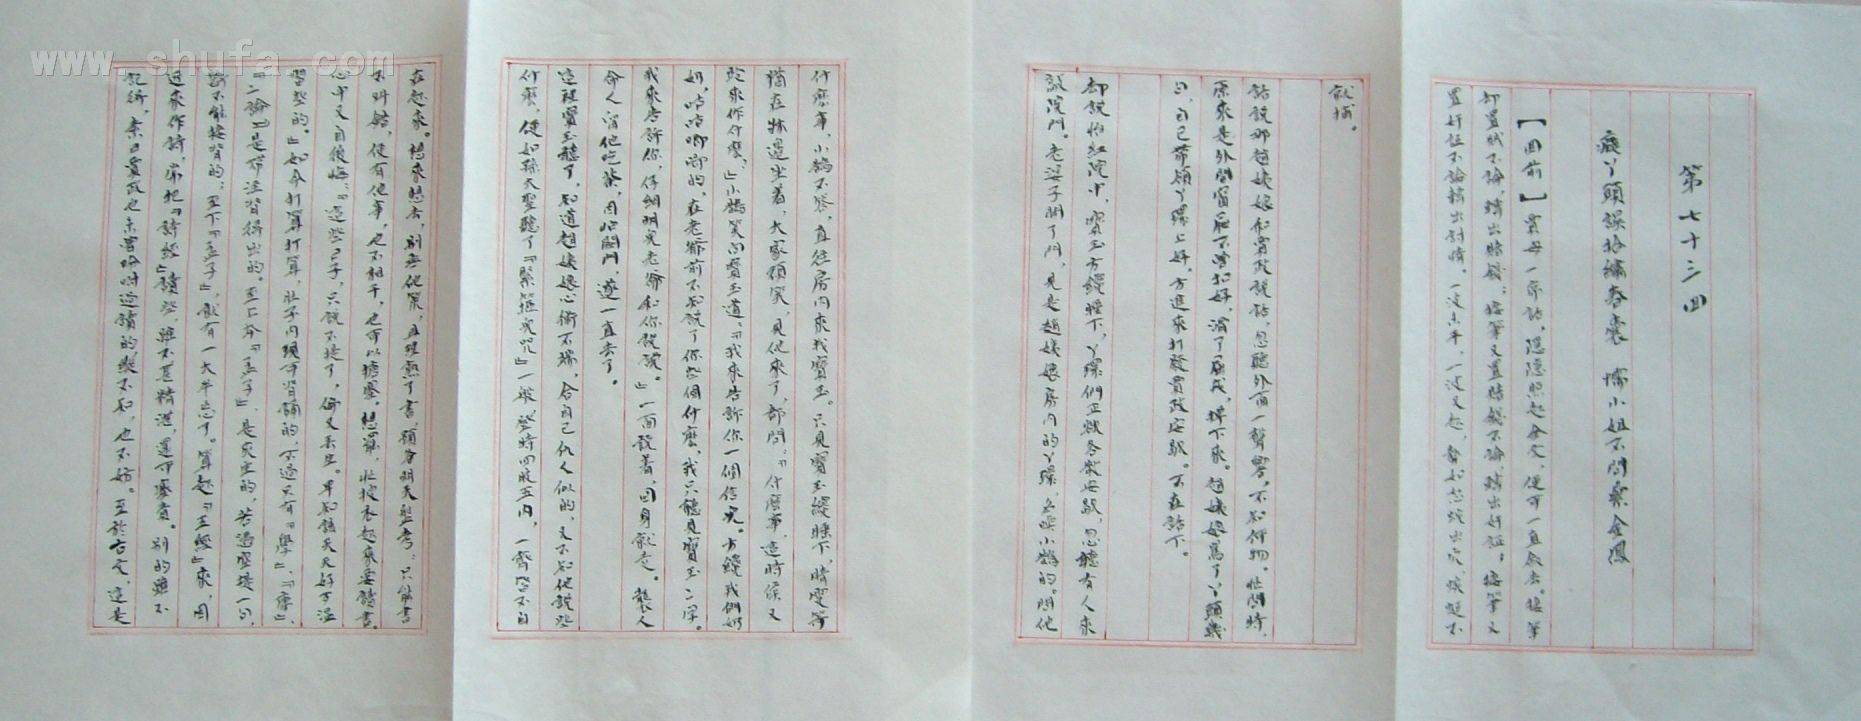 www.shufa.com
第七十三回
癡丫頭誤拾繡春囊 懦小姐不問纍金鳳
【回前】賈母一席話，隱隱照起全文，便可一直敘去。接筆
却置賊不論，轉出賭錢；接筆又置賭錢不論，轉出奸証；接筆又
置奸証不論，轉出討情。一波未平，一波又起，
就捕。
話說那趙姨娘和賈政說話，忽聽外面一聲響，不知何物。忙問時，
原來是外間窗屜不曾扣好，滑了屈戌，掉下來。趙姨娘罵了丫頭幾
句，自己帶領丫鬟上好，方進來打發賈政安歇。不在話下。
却說怡紅院中，寶玉方纔睡下，丫鬟們正欲各散安歇，忽聽有人來
敲院門。老婆子開了門，見是趙姨娘房內的丫鬟，名喚小鵲的。問他
什麼事，小鵲不答，直往房內來找寶玉。只見寶玉纔睡下，晴雯等
猶在牀邊坐着，大家頑笑，見他來了，都問：『什麼事，這時候又
跑來作什麼？』小鵲笑向寶玉道：『我來告訴你一個信兒。方纔我們奶
奶，咕咕唧唧的，在老爺前不知說了你些個什麼，我只聽見寶玉二字。
我來告訴你，仔細明兒老爺和你說話。』一面說着，回身就走。襲人
命人留他吃茶，因怕關門，遂一直去了。
這裡寶玉聽了，知道趙姨娘心術不端，合自己仇人似的，又不知他說些
什麼，便如孫大聖聽了『緊箍兒咒』一般，登時四肢五內，一齊皆不自
在起來。想來想去，別無他策，且理熟了書，預備明天盤考：只能書
不舛錯，便有他事，也不相干，也可以搪塞。想罷，忙披衣起來要讀書。
心中又自後悔：『這些日子，只說不提了，偏又丟生。早知該天天好歹溫
習些的。』如今打算打算，肚子內現可背誦的，不過只有『學』、『庸』、
『二論』是帶注背得出的。至上本『孟子』，是夾生的，若憑空提一句，
斷不能接背的；至下『孟子』，就有一大半忘了。算起『五經』來，因
近來作詩，常把『詩經』讀些，雖不甚精湛，還可塞責。別的雖不
記得，素日賈政也未曾吩咐過讀的，縱不知，也不妨。至於古文，這是